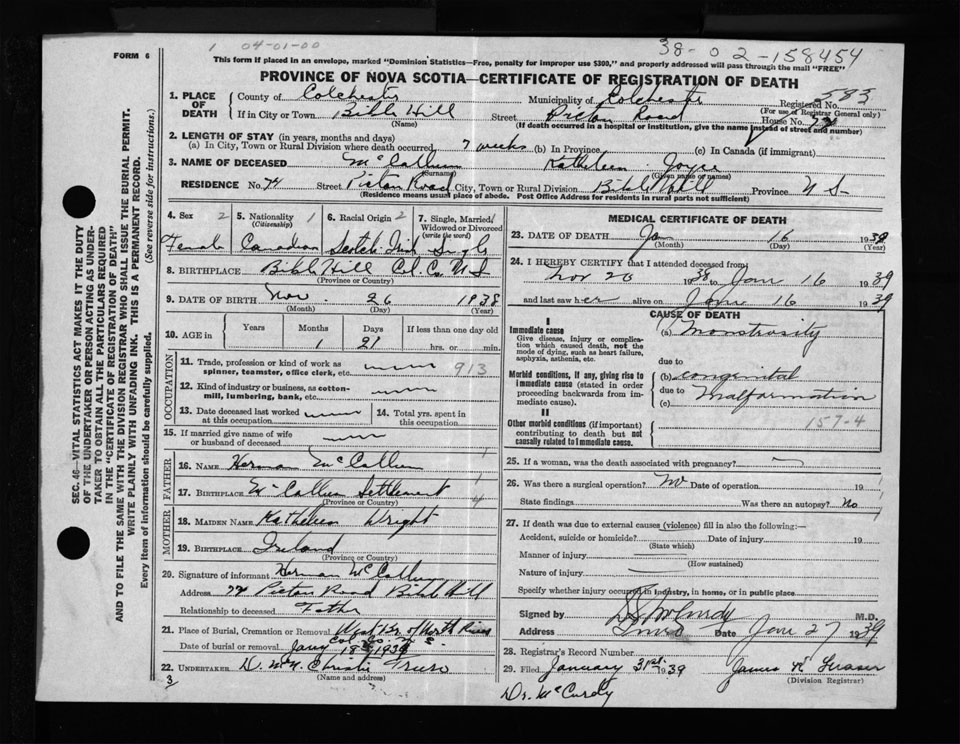 1 04-01-00
38-02-158454
FORM 6
This form if placed in an envelope, marked "Dominion Statistics—Free, penalty for improper use $300," and properly addressed will pass through the mail "FREE"
PROVINCE OF NOVA SCOTIA—CERTIFICATE OF REGISTRATION OF DEATH
SEC. 46—VITAL STATISTICS ACT MAKES IT THE DUTY
OF THE UNDERTAKER OR PERSON ACTING AS UNDER-
TAKER TO OBTAIN ALL THE PARTICULARS REQUIRED
IN THE "CERTIFICATE OF REGISTRATION OF DEATH"
AND TO FILE THE SAME WITH THE DIVISION REGISTRAR WHO SHALL ISSUE THE BURIAL PERMIT.
WRITE PLAINLY WITH UNFADING INK. THIS IS A PERMANENT RECORD.
Every item of information should be carefully supplied. (See reverse side for instructions.)
1. PLACE OF DEATH County of Colchester Municipality of Colchester Registered No. 583
(For use of Registrar General only)
If in City or Town Bible Hill (Name) Street Picton Road House No. 74
(If death occurred in a hospital or institution, give the name instead of street and number)
2. LENGTH OF STAY (in years, months and days)
(a) In City, Town or Rural Division where death occurred 7 weeks (b) In Province (c) In Canada (if immigrant)
3. NAME OF DECEASED McCallum Kathleen Joyce
(Surname) (Given name or names)
RESIDENCE No. 74 Street Picton Road City, Town or Rural Division Bible Hill Province N S
(Residence means usual place of abode. Post Office Address for residents in rural parts not sufficient)
4. Sex 2 5. Nationality 1 (Citizenship) 6. Racial Origin 2 7. Single, Married, Widowed or Divorced (write the word)
Female Canadian Scotch Irish Single
8. BIRTHPLACE Bible Hill Col. Co. N S
(Province or Country)
9. DATE OF BIRTH Nov. 26 1938
(Month) (Day) (Year)
10. AGE in Years Months Days If less than one day old
1 21 hrs. or min.
OCCUPATION
11. Trade, profession or kind of work as spinner, teamster, office clerk, etc. 913
12. Kind of industry or business, as cotton-mill, lumbering, bank, etc.
13. Date deceased last worked at this occupation 14. Total yrs. spent in this occupation
15. If married give name of wife or husband of deceased
FATHER
16. NAME Herman McCallum
17. BIRTHPLACE McCallum Settlement
(Province or Country)
MOTHER
18. MAIDEN NAME Kathleen Wright
19. BIRTHPLACE Ireland
(Province or Country)
20. Signature of informant Herman McCallum
Address 74 Picton Road Bible Hill
Relationship to deceased Father
21. Place of Burial, Cremation or Removal West Br. of North River
Col. Co. N. S.
Date of burial or removal Jany 18 1939
22. UNDERTAKER D. McN. Christie Truro
(Name and address)
3
MEDICAL CERTIFICATE OF DEATH
23. DATE OF DEATH Jan 16 1939
(Month) (Day) (Year)
24. I HEREBY CERTIFY that I attended deceased from
Nov 26 1938 to Jan 16 1939
and last saw her alive on Jan 16 1939
CAUSE OF DEATH
I
Immediate cause
Give disease, injury or complication which caused death, not the mode of dying, such as heart failure, asphyxia, asthenia, etc.
(a) Monstrosity
due to
Morbid conditions, if any, giving rise to immediate cause (stated in order proceeding backwards from immediate cause).
(b) congenital
due to Malformation
(c)
II
Other morbid conditions (if important) contributing to death but not causally related to immediate cause.
157-4
25. If a woman, was the death associated with pregnancy?
26. Was there a surgical operation? No Date of operation 19
State findings Was there an autopsy? No
27. If death was due to external causes (violence) fill in also the following:—
Accident, suicide or homicide? Date of injury 19
(State which)
Manner of injury
(How sustained)
Nature of injury
Specify whether injury occurred in industry, in home, or in public place
Signed by McCurdy M.D.
Address Truro Date Jan 27 1939
28. Registrar's Record Number
29. Filed January 31st 1939 James K Fraser
(Division Registrar)
Dr. McCurdy